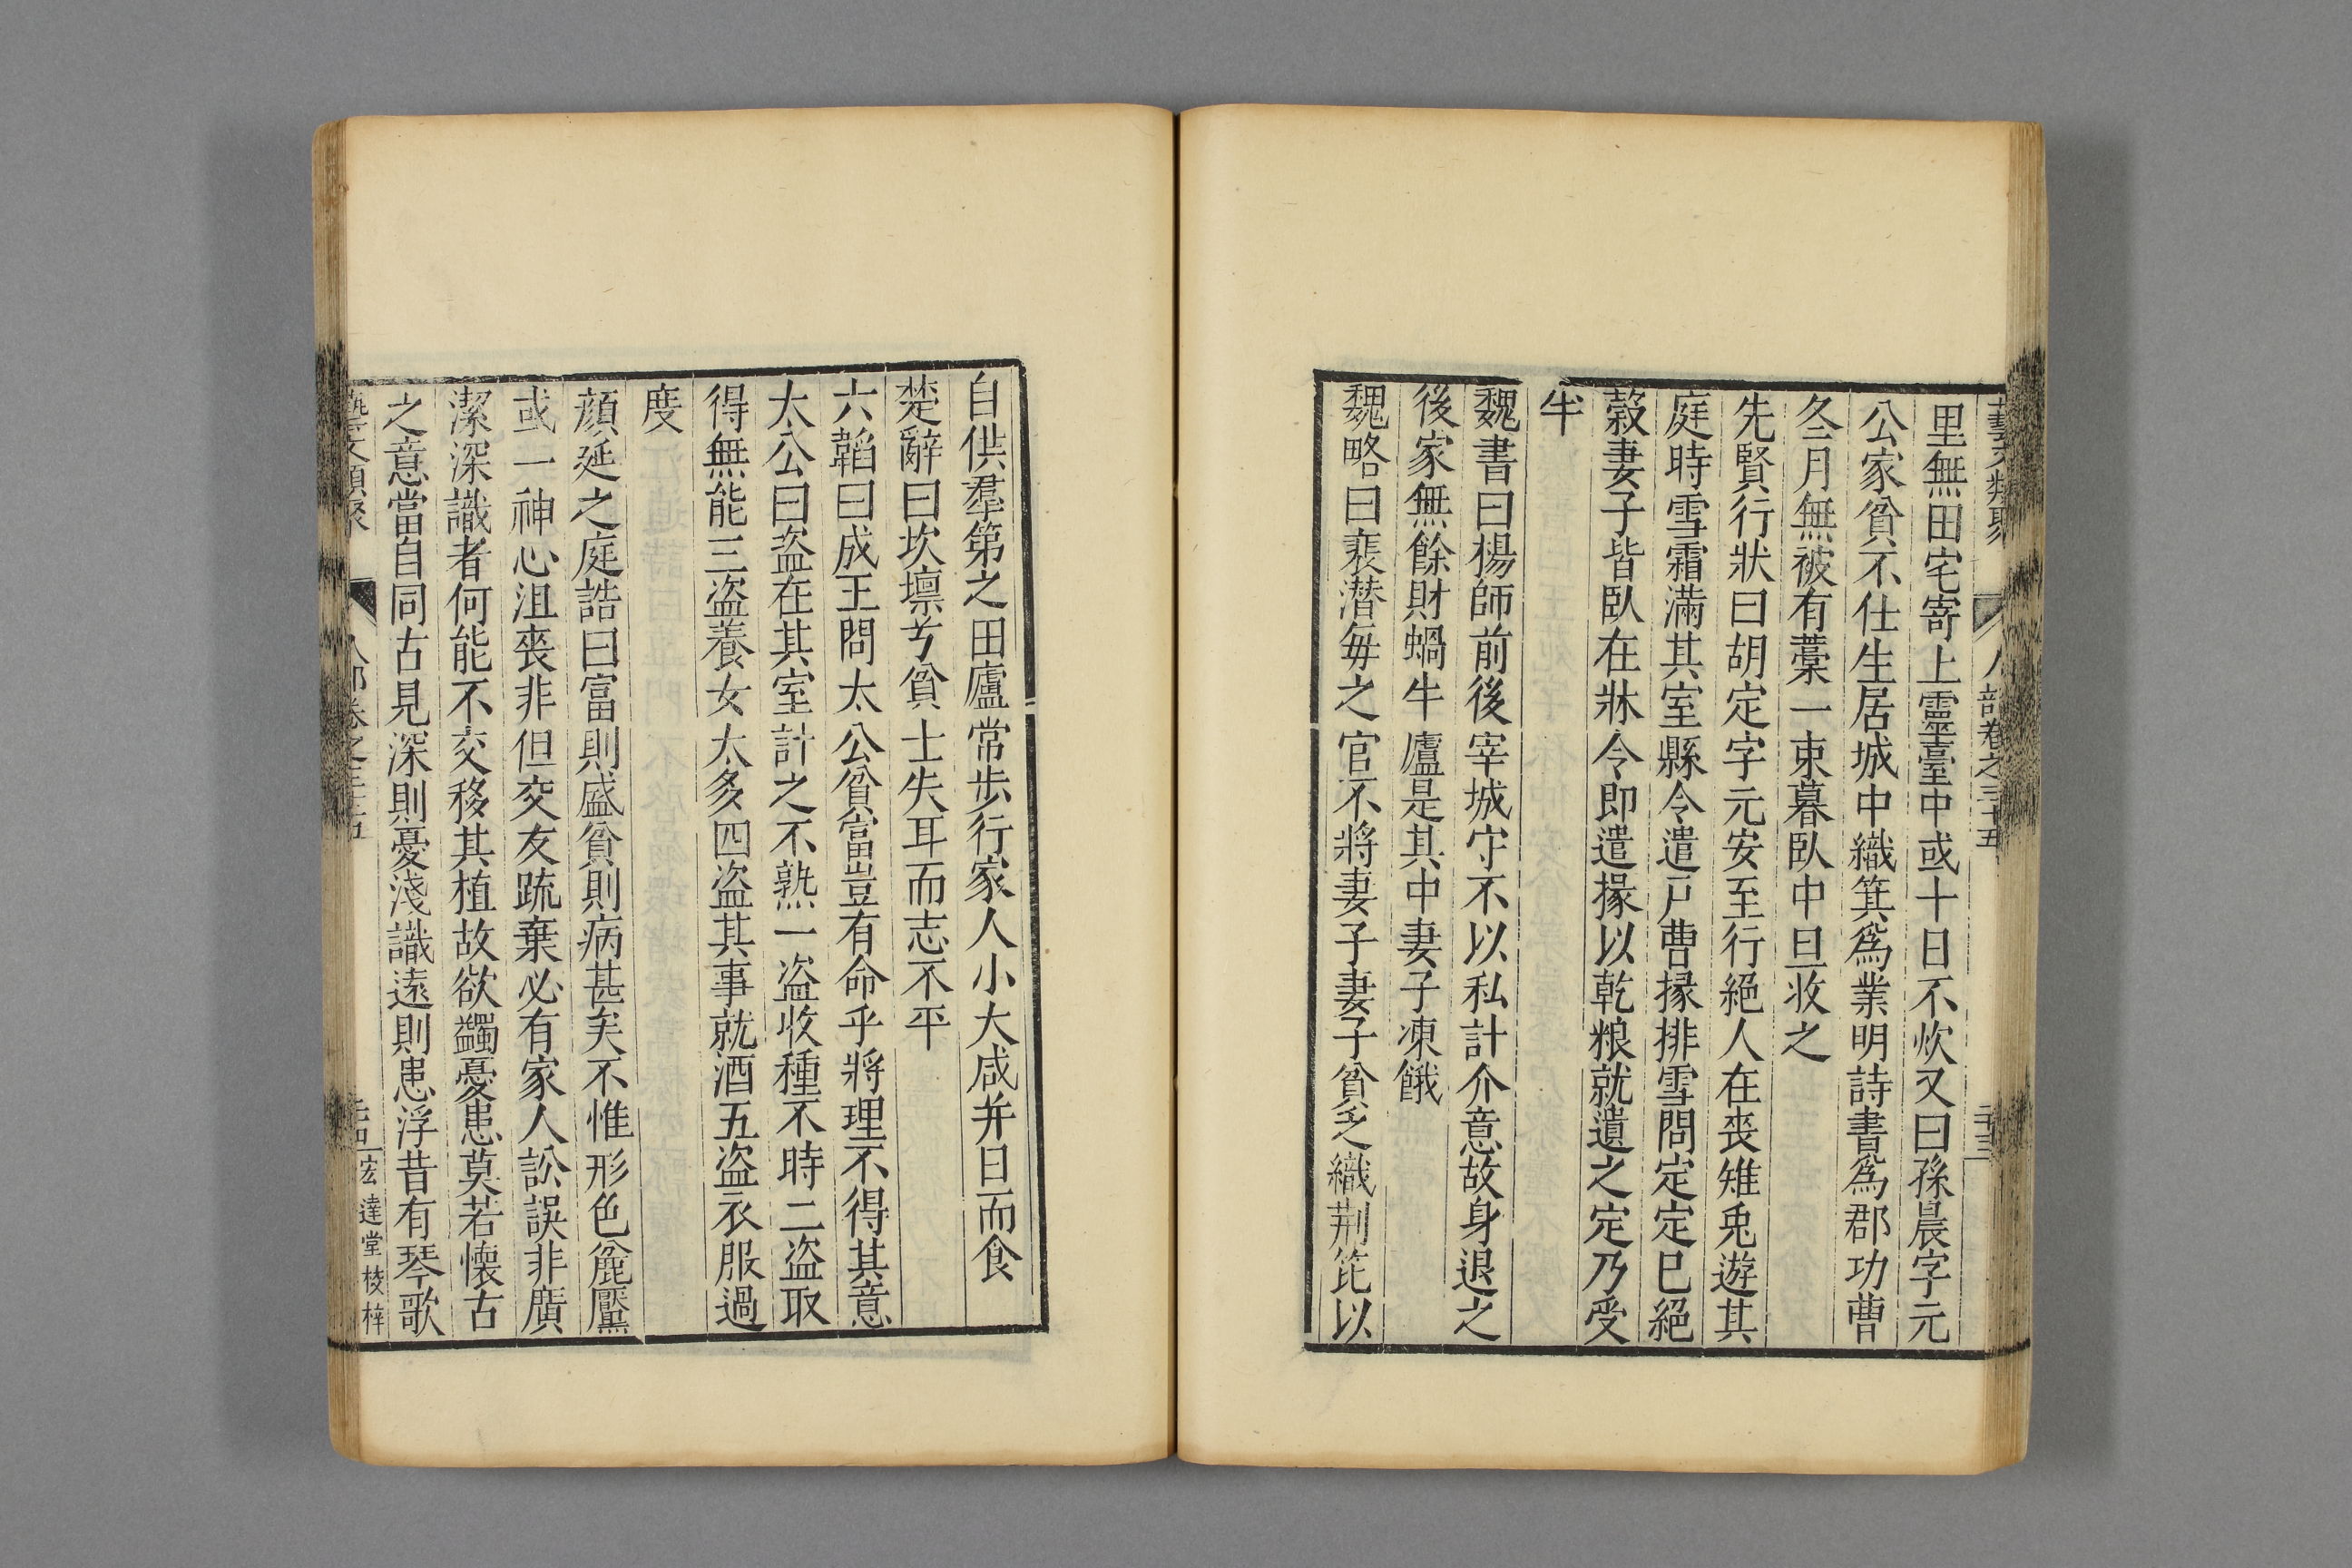 藝文類聚 人部卷之三十五 二十三
里無田宅寄上靈臺中或十日不炊又曰孫晨字元
公家貧不仕生居城中織箕爲業明詩書爲郡功曹
冬月無被有藁一束暮臥中旦收之
先賢行狀曰胡定字元安至行絕人在喪雉兎遊其
庭時雪霜滿其室縣令遣戸曹掾排雪問定定已絕
榖妻子皆臥在牀令即遣掾以乾粮就遺之定乃受
半
魏書曰楊師前後宰城守不以私計介意故身退之
後家無餘財蝸牛廬是其中妻子凍餓
魏略曰裴潛每之官不將妻子妻子貧乏織荆笓以
自供羣第之田廬常步行家人小大咸并日而食
楚辭曰坎壈兮貧士失耳而志不平
六韜曰成王問太公貧富豈有命乎將理不得其意
太公曰盗在其室計之不熟一盗收種不時二盗取
得無能三盗養女太多四盗其事就酒五盗衣服過
度
顏延之庭誥曰富則盛貧則病甚矣不惟形色麄黶
或一神心沮喪非但交友疏棄必有家人訟誤非廣
潔深識者何能不交移其植故欲蠲憂患莫若懷古
之意當自同古見深則憂淺識遠則患浮昔有琴歌
藝文類聚 人部卷之三十五 宏達堂校梓